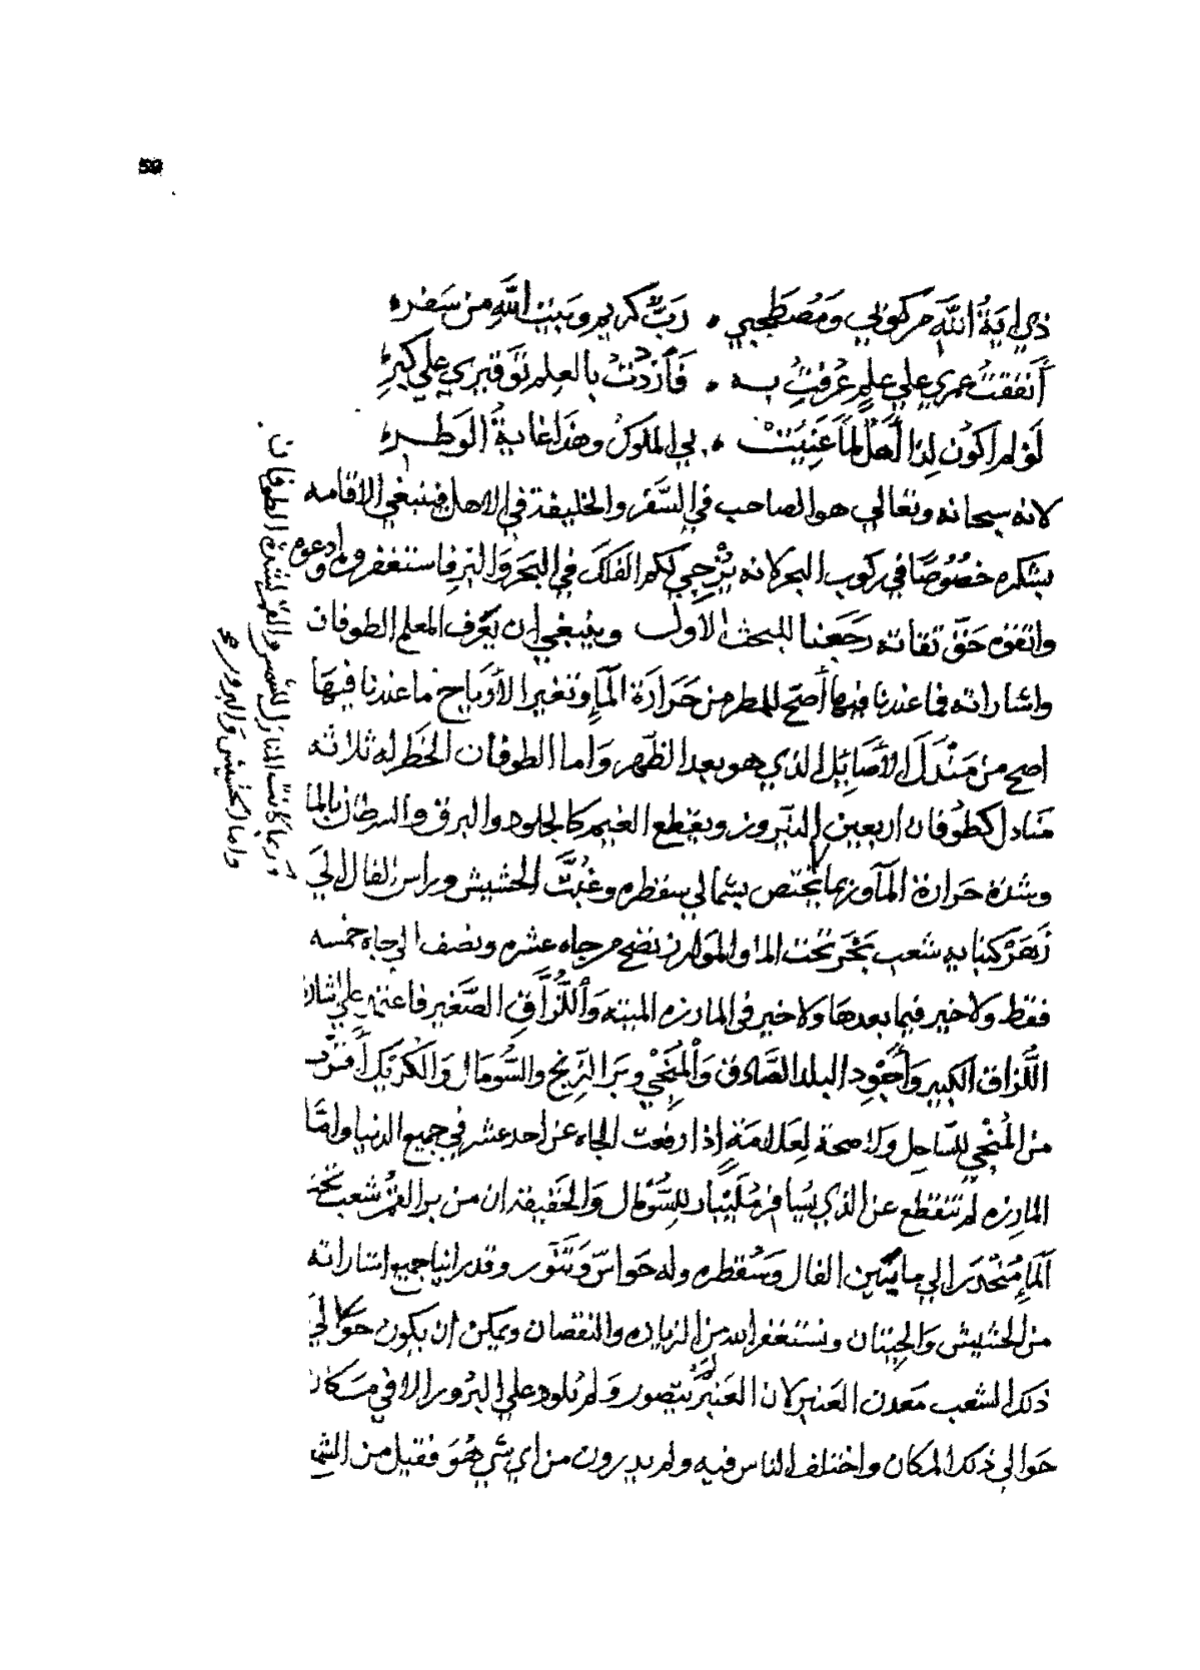 59
ذي اية الله مركوبي ومصطحبي • رب كريم وبيت الله من سفره
أنفقت عمري علي علم عرفت به • فازدت بالعلم توقيري علي كبره
لو لم اكون لذا أهل لما عنيت • بي الملوك وهذا غاية الوطره
لانه سبحانه وتعالي هو الصاحب في السفر والخليفة في الاهل فينبغي الاقامه
بشكره خصوصًا في ركوب البحر لانه يزجي لكم الفلك في البحر والبر فاستغفروه وادعوه
واتقوه حق تقاته رجعنا للبحث الاول وينبغي ان يعرف المعلم الطوفان
واشاراته فما عندنا فيها أصح للمطر من حرارة المآء وتغير الأرياح ما عندنا فيها
اصح من مندل الأصايل الذي هو بعد الظهر واما الطوفان الخطر له ثلاثه
منادل كطوفان اربعين النيروز ويقطع الغيم كالجلود والبرق والسرطان بالما
وشدة حرارة المآء وربما يختص بشمالي سقطره وغبت الحشيش وراس الفال الي
شعب تحت الما والموارز تضح من جاه عشره ونصف الي جاه خمسه
فقط ولا خير فيما بعدها ولا خير في المارزه الميته واللزاق الصغير فاعتمد علي اشارة
اللزاق الكبير وأجود البلد الصادق والمنجي وبر الزنج والسومال والكريك أقرب
من المنجي للساحل ولا صحة لعلامة إذا رفعت الجاه عن احد عشر في جميع الدنيا واما
المارزه لم تنقطع عن الذي يسافر مليبار للسومال والحقيقه ان من بر القمر شعب تحت
المآء منحدر الي ما بين الفال وسقطره وله حواس وتنور وقد راينا جميع اشاراته
من الحشيش والحيتان ونستغفر الله من الزياده والنقصان ويمكن ان يكون حوالي
ذلك الشعب معدن العنبر لان العنبر لم يتصور ولم يلود علي البرور الا في مكان
حوالي ذلك المكان واختلف الناس فيه ولم يدرون من اي شي هو فقيل من الشمع
وربما كانت المنازل للشمس والقمر لشدة الطوفان
واما الحشيش والبرور